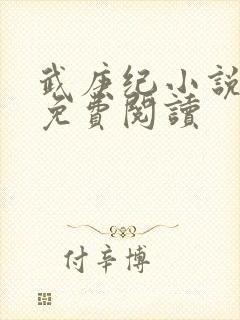 武庚纪小説
免費閱讀
付辛博